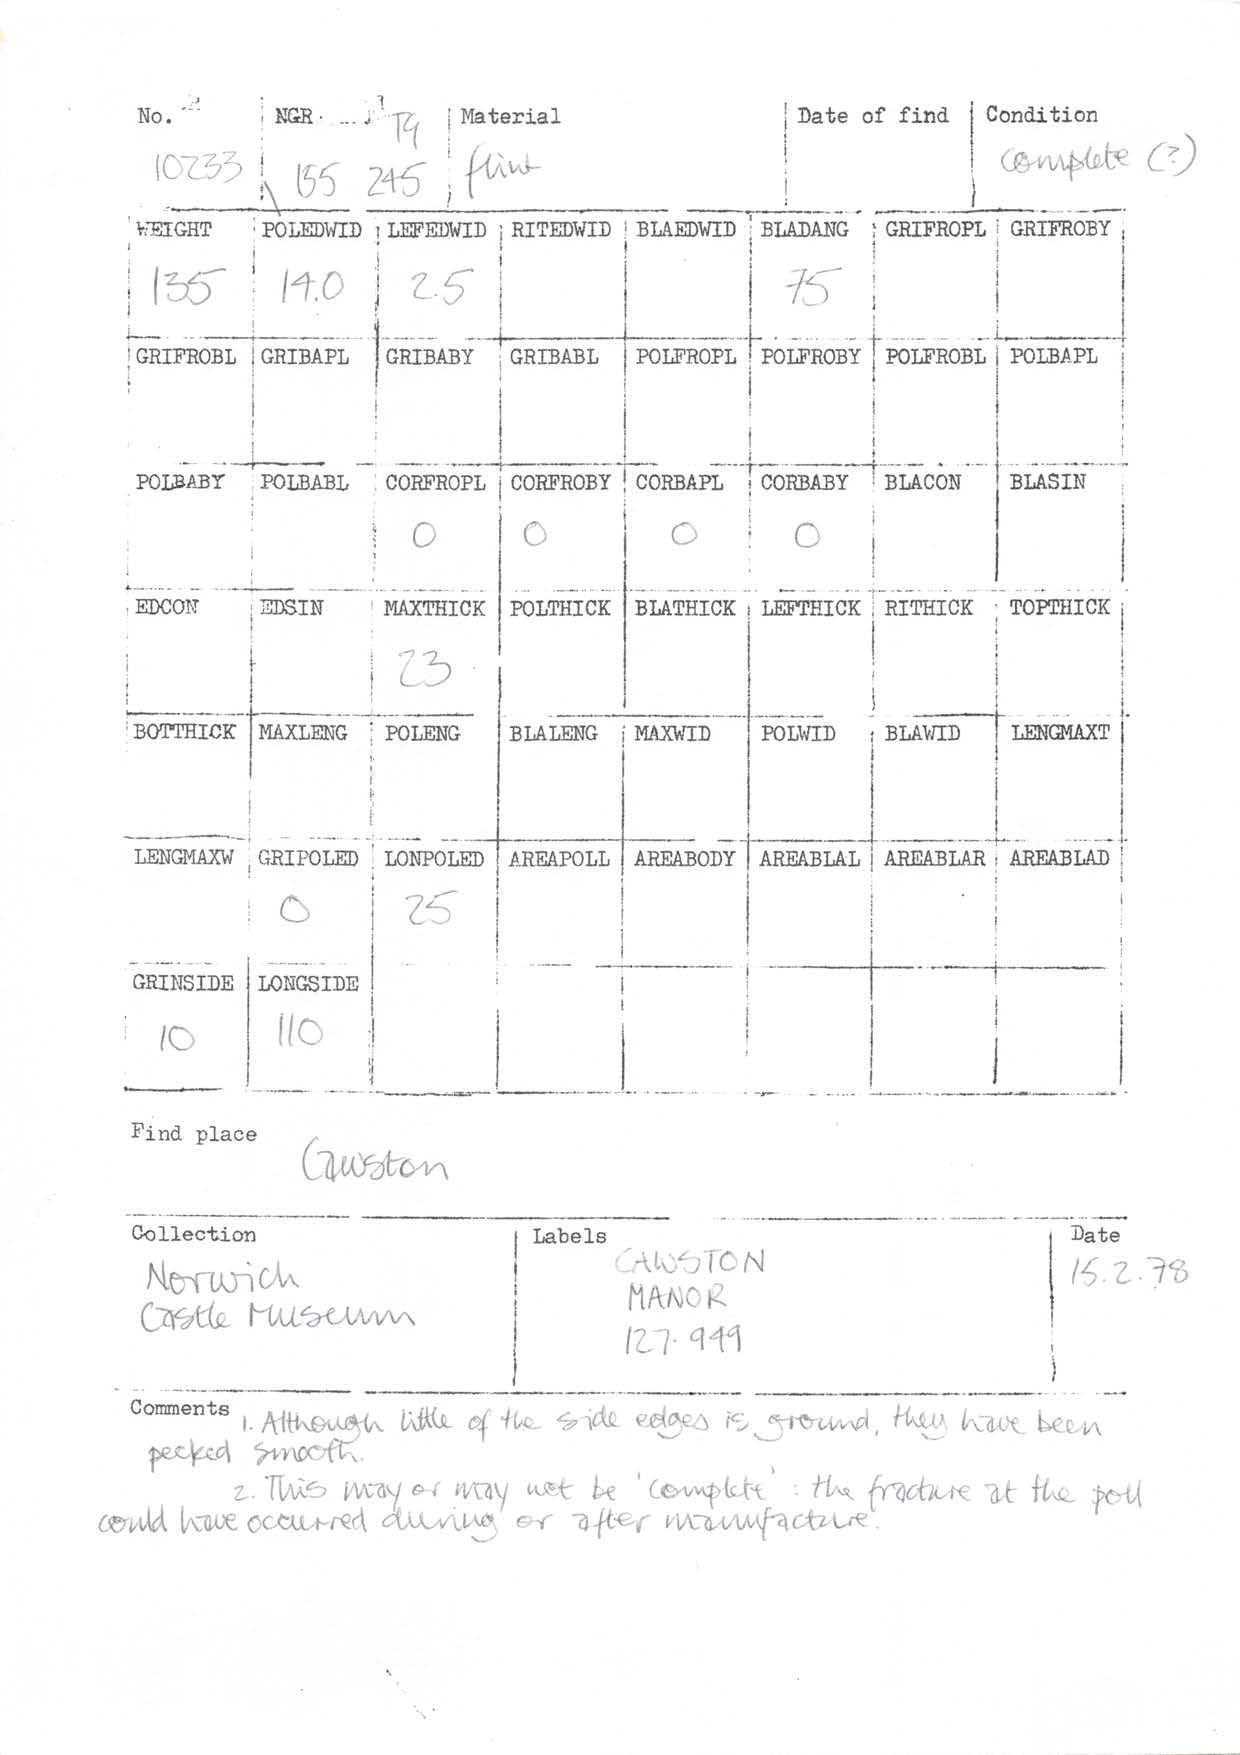 No. NGR Material Date of find Condition
TG
10233 155 245 flint complete (?)
WEIGHT POLEDWID LEFEDWID RITEDWID BLAEDWID BLADANG GRIFROPL GRIFROBY
135 14.0 2.5 75
GRIFROBL GRIBAPL GRIBABY GRIBABL POLFROPL POLFROBY POLFROBL POLBAPL
POLBABY POLBABL CORFROPL CORFROBY CORBAPL CORBABY BLACON BLASIN
0 0 0 0
EDCON EDSIN MAXTHICK POLTHICK BLATHICK LEFTHICK RITHICK TOPTHICK
23
BOTTHICK MAXLENG POLENG BLALENG MAXWID POLWID BLAWID LENGMAXT
LENGMAXW GRIPOLED LONPOLED AREAPOLL AREABODY AREABLAL AREABLAR AREABLAD
0 25
GRINSIDE LONGSIDE
10 110
Find place
Cawston
Collection Labels Date
Norwich CAWSTON 15.2.78
Castle Museum MANOR
127.949
Comments 1. Although little of the side edges is ground, they have been
pecked smooth.
2. This may or may not be 'complete' : the fracture at the poll
could have occurred during or after manufacture.